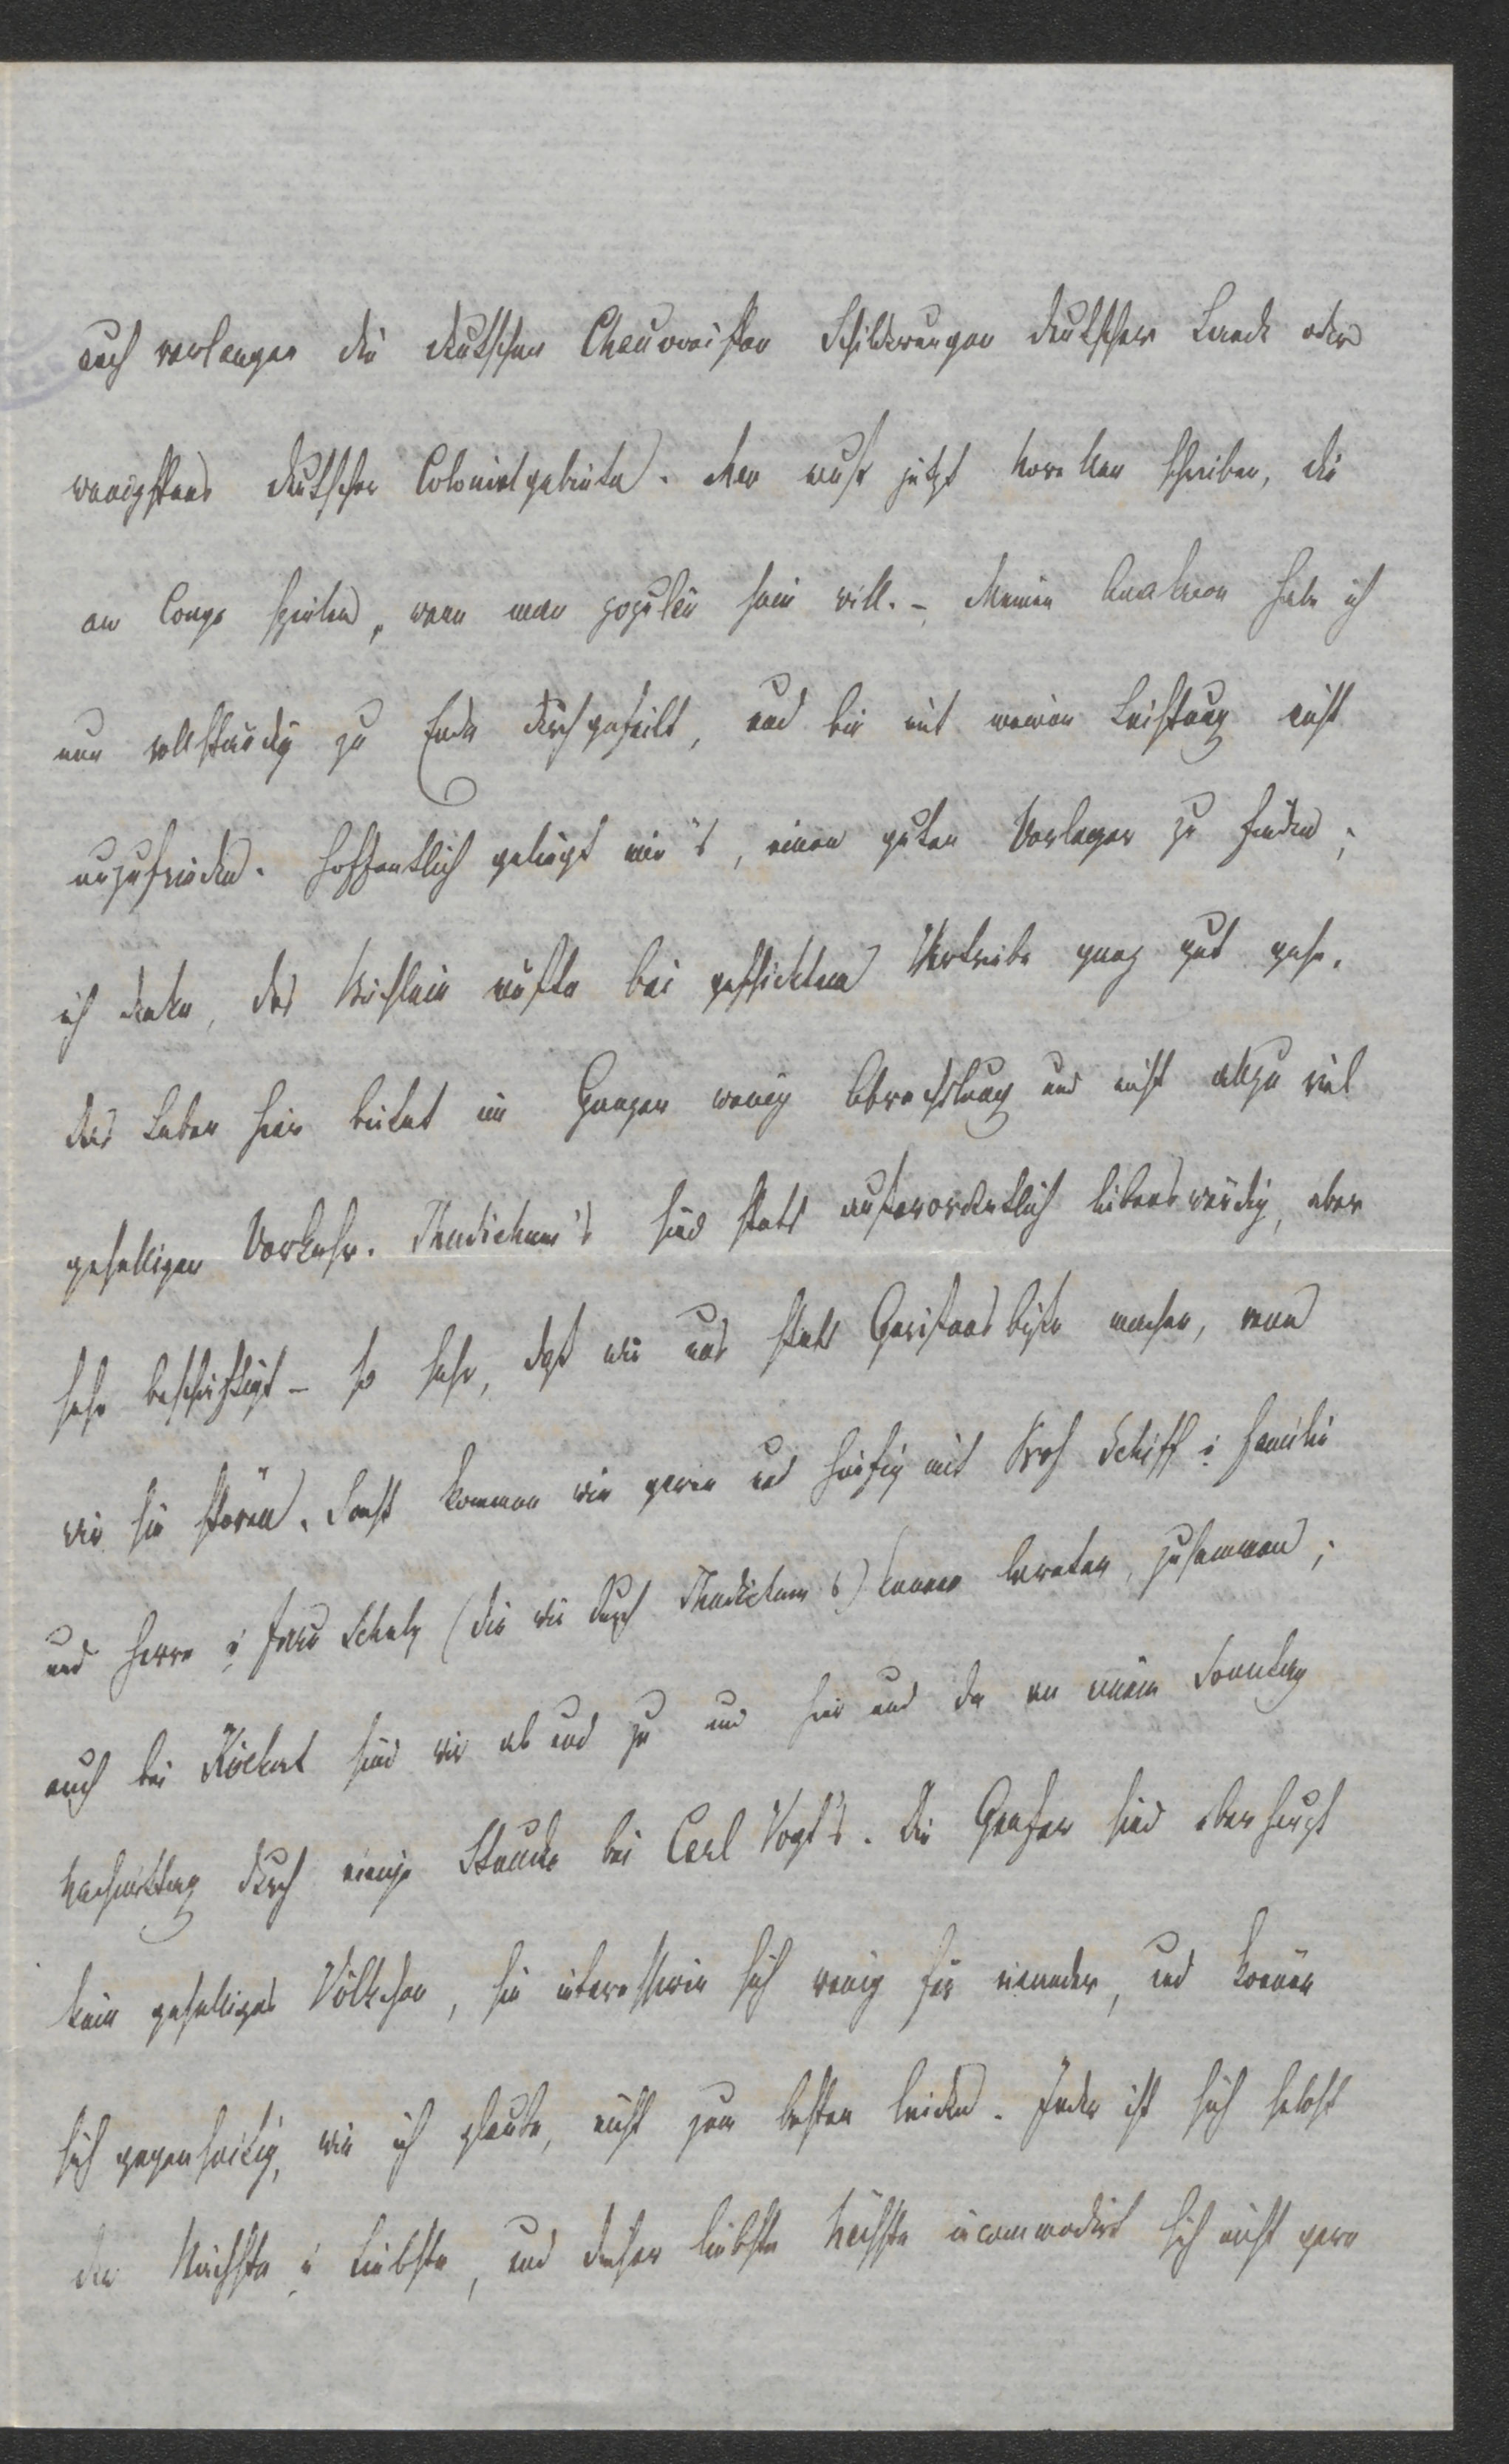 auch verlangen die deutschen Chauvinisten Schilderungen deutscher Lande oder
wenigstens deutscher Colonialgebiete. Man muß jetzt Novellen schreiben, die
am Congo spielen, wenn man populär sein will. – Meinen habe ich
nun vollständig zu Ende durchgefeilt, und bin mit meiner Leistung nicht
unzufrieden. Hoffentlich gelingt mir's, einen guten Verleger zu finden;
ich denke, das Büchlein müßte bei geschicktem Vertriebe ganz gut gehn.
Das Leben hier bietet im Ganzen wenig Abwechslung und nicht allzu viel
geselligen Verkehr. Thudichum's sind stets außerordentlich liebenswürdig, aber
sehr beschäftigt – so sehr, daß wir uns stets Gewissensbisse machen, wenn
wir sie stören. Sonst kommen wir gern und häufig mit Prof Schiff u Familie
und Herrn u Frau Schulz (die wir durch Thudichum's) kennen lernten, zusammen;
auch bei sind wir ab und zu und hier und da an einem Sonntag
Nachmittag durch einige Stunden bei Carl Vogt's. Die Genfer sind überhaupt
kein geselliges Völkchen, sie interessiren sich wenig für einander, und können
sich gegenseitig, wie ich glaube, nicht zum besten leiden. Jeder ist sich selbst
der Nächste u Liebste, und dieser liebste Nächste incommodirt sich nicht gern